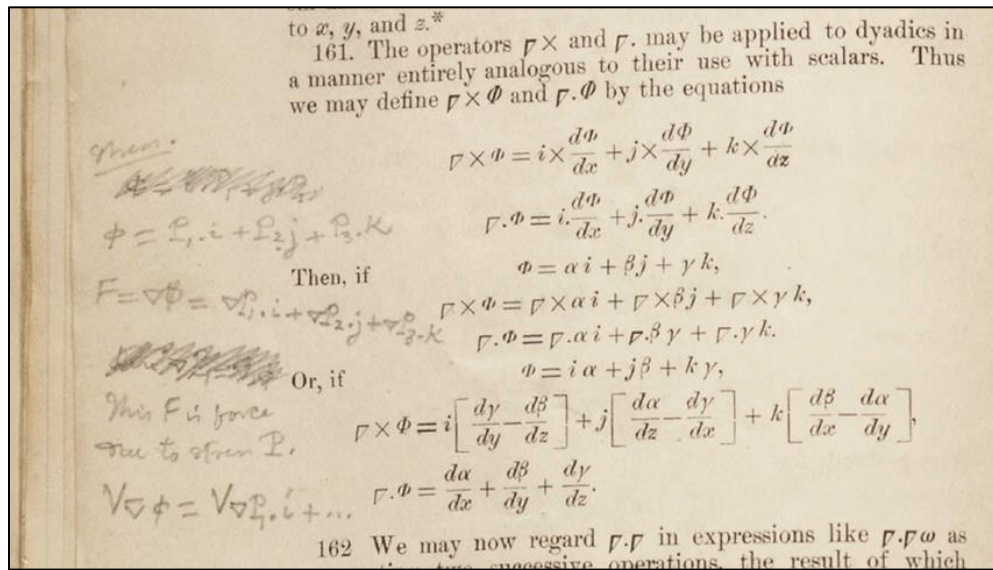 to x, y, and z.*
161. The operators ∇× and ∇. may be applied to dyadics in
a manner entirely analogous to their use with scalars. Thus
we may define ∇×Φ and ∇.Φ by the equations
∇×Φ = i×dΦ/dx + j×dΦ/dy + k×dΦ/dz
∇.Φ = i.dΦ/dx + j.dΦ/dy + k.dΦ/dz.
Then, if
Φ = α i + β j + γ k,
∇×Φ = ∇×α i + ∇×β j + ∇×γ k,
∇.Φ = ∇.α i + ∇.β γ + ∇.γ k.
Or, if
Φ = i α + j β + k γ,
∇×Φ = i[dγ/dy − dβ/dz] + j[dα/dz − dγ/dx] + k[dβ/dx − dα/dy],
∇.Φ = dα/dx + dβ/dy + dγ/dz.
162 We may now regard ∇.∇ in expressions like ∇.∇ω as
two successive operations, the result of which
φ = P₁.i + P₂.j + P₃.k
F = ∇φ = ∇P₁.i + ∇P₂.j + ∇P₃.k
This F is force
due to stress P.
V∇φ = V∇P₁.i + ...